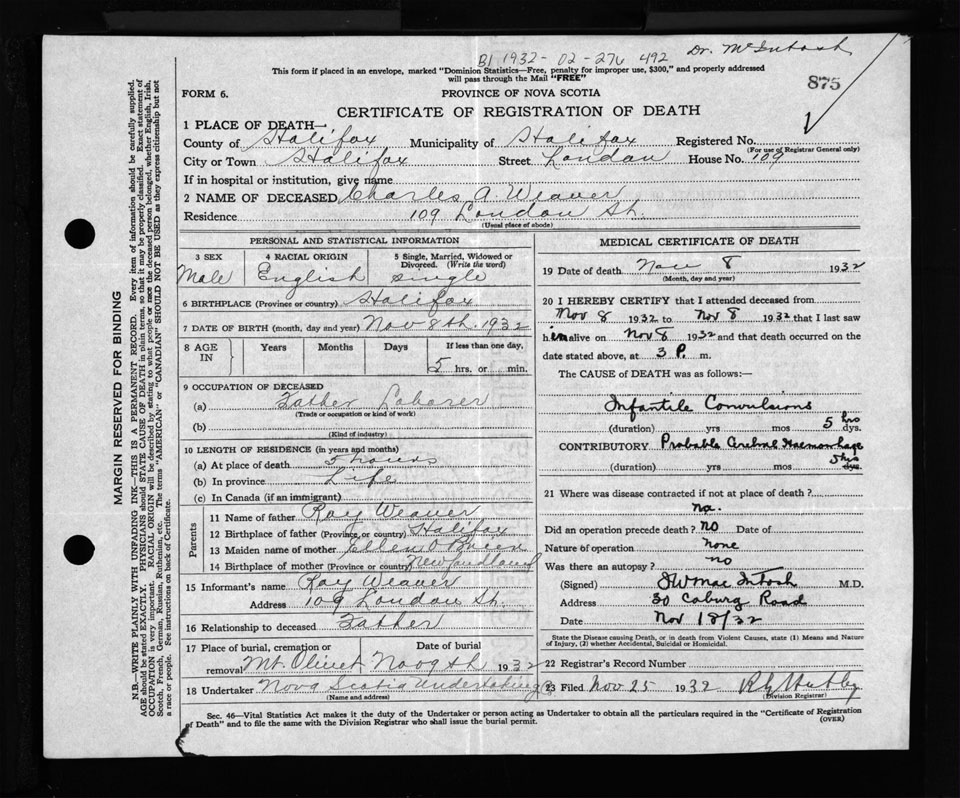 B1 1932-02-276 492
Dr. McIntosh
This form if placed in an envelope, marked "Dominion Statistics—Free, penalty for improper use, $300," and properly addressed
will pass through the Mail "FREE"
875
FORM 6.
PROVINCE OF NOVA SCOTIA
CERTIFICATE OF REGISTRATION OF DEATH
1 PLACE OF DEATH—
County of Halifax Municipality of Halifax Registered No.
(For use of Registrar General only)
City or Town Halifax Street London House No. 109
If in hospital or institution, give name
2 NAME OF DECEASED Charles A. Weaver
Residence 109 London St.
(Usual place of abode)
PERSONAL AND STATISTICAL INFORMATION
3 SEX 4 RACIAL ORIGIN 5 Single, Married, Widowed or
Divorced. (Write the word)
Male English single
6 BIRTHPLACE (Province or country) Halifax
7 DATE OF BIRTH (month, day and year) Nov 8th. 1932
8 AGE IN Years Months Days If less than one day,
5 hrs. or min.
9 OCCUPATION OF DECEASED
(a) Father Laborer
(Trade or occupation or kind of work)
(b)
(Kind of industry)
10 LENGTH OF RESIDENCE (in years and months)
(a) At place of death 5 hours
(b) In province Life
(c) In Canada (if an immigrant)
Parents
11 Name of father Roy Weaver
12 Birthplace of father (Province or country) Halifax
13 Maiden name of mother Ellen O'Brien
14 Birthplace of mother (Province or country) Newfoundland
15 Informant's name Roy Weaver
Address 109 London St.
16 Relationship to deceased Father
17 Place of burial, cremation or Date of burial
removal Mt. Olivet Nov 9th 1932
18 Undertaker Nova Scotia Undertaking Co
(Name and address)
MEDICAL CERTIFICATE OF DEATH
19 Date of death Nov 8 1932
(Month, day and year)
20 I HEREBY CERTIFY that I attended deceased from
Nov 8 1932 to Nov 8 1932 that I last saw
him alive on Nov 8 1932 and that death occurred on the
date stated above, at 3 P. m.
The CAUSE of DEATH was as follows:—
Infantile Convulsions
(duration) yrs mos 5 hrs dys.
CONTRIBUTORY Probable Cerebral Haemorrhage
(duration) yrs mos 5 hrs dys.
21 Where was disease contracted if not at place of death?
no.
Did an operation precede death? no Date of
Nature of operation none
Was there an autopsy? no
(Signed) MacIntosh M.D.
Address 30 Coburg Road
Date Nov 18/32
State the Disease causing Death, or in death from Violent Causes, state (1) Means and Nature
of Injury, (2) whether Accidental, Suicidal or Homicidal.
22 Registrar's Record Number
23 Filed Nov 25 1932
(Division Registrar)
Sec. 46—Vital Statistics Act makes it the duty of the Undertaker or person acting as Undertaker to obtain all the particulars required in the "Certificate of Registration
of Death" and to file the same with the Division Registrar who shall issue the burial permit.
(OVER)
MARGIN RESERVED FOR BINDING
N.B.—WRITE PLAINLY WITH UNFADING INK—THIS IS A PERMANENT RECORD. Every item of information should be carefully supplied.
AGE should be stated EXACTLY. PHYSICIANS should STATE CAUSE OF DEATH in plain terms, so that it may be properly classified. Exact statement of
OCCUPATION is very important. RACIAL ORIGIN will be described by stating to what people or race the deceased person belonged, whether English, Irish,
Scotch, French, German, Russian, Ruthenian, etc. The terms "AMERICAN" or "CANADIAN" SHOULD NOT BE USED as they express citizenship but not
a race or people. See instructions on back of Certificate.